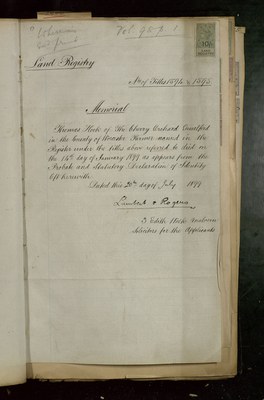 Vol. 957. 1
Land Registry
No of Titles 1594 & 1595
Memorial
Thomas Hoole of The Cherry Orchard
in the County of Worcester Farmer named in the
Register under the titles above referred to died on
the 14th day of January 1899 as appears from the
Probate and Statutory Declaration of Identity
left herewith
Dated this 20th day of July 1899
Lambert & Rogers
Solicitors for the Applicants